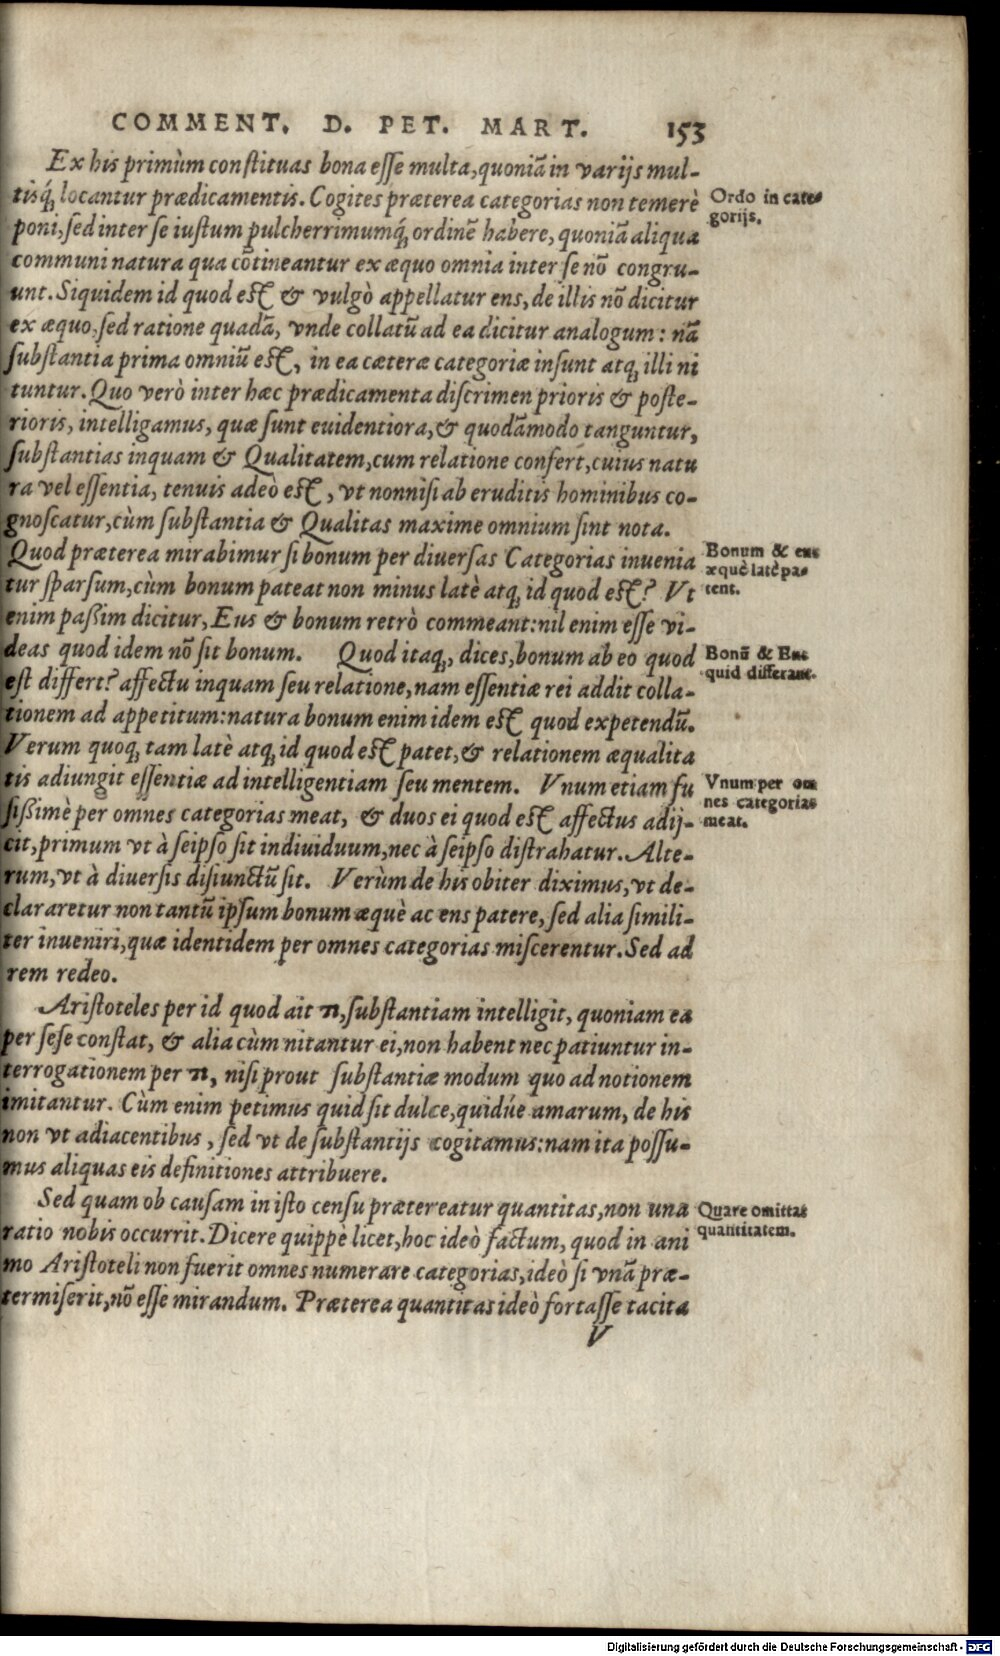 COMMENT. D. PET. MART. 153
Ex his primùm constituas bona esse multa, quoniã in varijs mul-
tisq́; locantur prædicamentis. Cogites præterea categorias non temerè
poni, sed inter se iustum pulcherrimumq́; ordinẽ habere, quoniã aliqua
communi natura qua cõtineantur ex æquo omnia inter se nõ congru-
unt. Siquidem id quod est & vulgò appellatur ens, de illis nõ dicitur
ex æquo, sed ratione quadã, vnde collatũ ad ea dicitur analogum: nã
substantia prima omniũ est, in ea cæteræ categoriæ insunt atq; illi ni
tuntur. Quo verò inter hæc prædicamenta discrimen prioris & poste-
rioris, intelligamus, quæ sunt euidentiora, & quodãmodo tanguntur,
substantias inquam & Qualitatem, cum relatione confert, cuius natu
ra vel essentia, tenuis adeò est, vt nonnisi ab eruditis hominibus co-
gnoscatur, cùm substantia & Qualitas maxime omnium sint nota.
Quod præterea mirabimur si bonum per diuersas Categorias inuenia
tur sparsum, cùm bonum pateat non minus latè atq; id quod est? Vt
enim paßim dicitur, Eus & bonum retrò commeant: nil enim esse vi-
deas quod idem nõ sit bonum. Quod itaq;, dices, bonum ab eo quod
est differt? affectu inquam seu relatione, nam essentiæ rei addit colla-
tionem ad appetitum: natura bonum enim idem est quod expetendũ.
Verum quoq; tam latè atq; id quod est patet, & relationem æqualita
tis adiungit essentiæ ad intelligentiam seu mentem. Vnum etiam fu
sißimè per omnes categorias meat, & duos ei quod est affectus adij-
cit, primum vt à seipso sit indiuiduum, nec à seipso distrahatur. Alte-
rum, vt à diuersis disiunctũ sit. Verùm de his obiter diximus, vt de-
clararetur non tantũ ipsum bonum æquè ac ens patere, sed alia simili-
ter inueniri, quæ identidem per omnes categorias miscerentur. Sed ad
rem redeo.
Aristoteles per id quod ait τι, substantiam intelligit, quoniam ea
per sese constat, & alia cùm nitantur ei, non habent nec patiuntur in-
terrogationem per τι, nisi prout substantiæ modum quo ad notionem
imitantur. Cùm enim petimus quid sit dulce, quidúe amarum, de his
non vt adiacentibus, sed vt de substantijs cogitamus: nam ita possu-
mus aliquas eis definitiones attribuere.
Sed quam ob causam in isto censu prætereatur quantitas, non una
ratio nobis occurrit. Dicere quippe licet, hoc ideò factum, quod in ani
mo Aristoteli non fuerit omnes numerare categorias, ideò si vnã præ-
termiserit, nõ esse mirandum. Præterea quantitas ideò fortasse tacita
V
Ordo in cate-
gorijs.
Bonum & ens
æquè latè pa-
tent.
Bonũ & Ens
quid differant.
Vnum per om
nes categorias
meat.
Quare omittat
quantitatem.
Digitalisierung gefördert durch die Deutsche Forschungsgemeinschaft - DFG